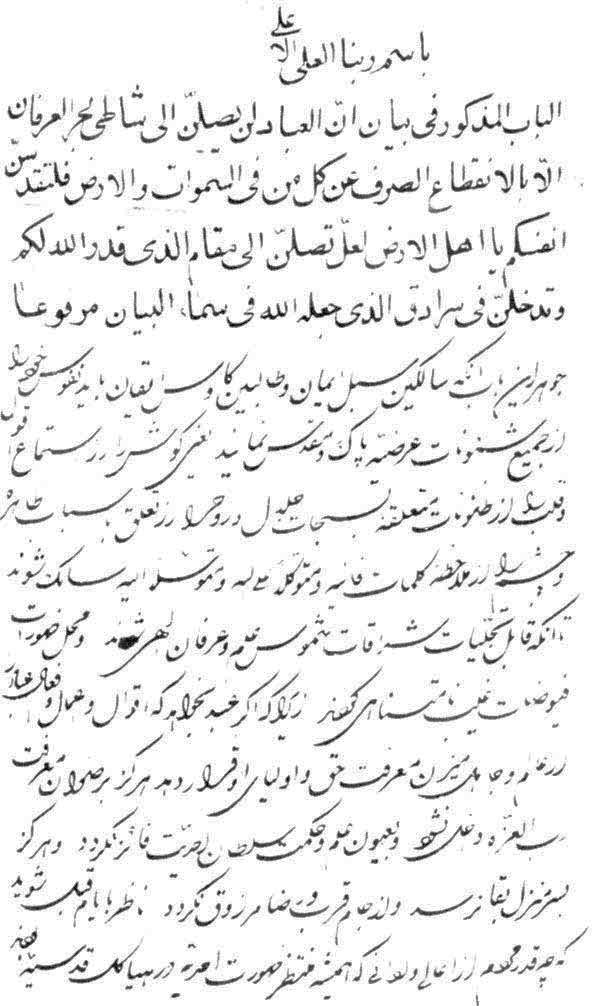 باسم ربنا العلی الاعلی
الباب المذكور فی بیان انّ العباد لن یصلنّ الی شاطی بحر العرفان
الّا بالانقطاع الصرف عن کل من فی السموات والارض فلتقدسنّ
انفسکم یا اهل الارض لعلّ تصلنّ الی مقام الذی قدر الله لکم
وتدخلنّ فی سرادق الذی جعله الله فی سماء البیان مرفوعا
جوهر این باب انکه سالکین سبیل ایمان و طالبین کاوس ایقان باید نفوس خود را
از جمیع شئونات عرضیه پاک و مقدس نمایند یعنی کوش را از استماع اقوال
و قلب را از ظنونات متعلقه بسبحات جلال و روح را از تعلق باسباب ظاهره
و چشم را از ملاحظه کلمات فانیه و متوکلا علی الله و متوسلا الیه سالک شوند
تا انکه قابل تجلیات اشراقات شموس علم و عرفان الهی شوند و محل ظهورات
فیوضات غیب نامتناهی کردند زیرا که اکر عبد بخواهد که اقوال و اعمال و افعال عباد را
از عالم و جاهل میزان معرفت حق و اولیای او قرار دهد هرکز برضوان معرفت
رب العزه داخل نشود و بعیون علم و حکمت سلطان احدیت فائز نکردد و هرکز
بسرمنزل بقا نرسد و از جام قرب و رضا مرزوق نکردد ناظر بایام قبل شوید
که چه قدر مردم از اعالی و ادانی که همیشه منتظر ظهورات احدیه در هیاکل قدسیه